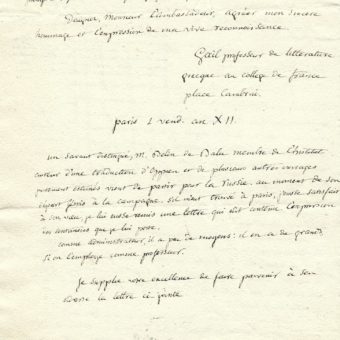 Daignez, Monsieur l'ambassadeur, agréer mon sincere
hommage et l'expression de ma vive reconnaissance.
Gail professeur de litterature
grecque au college de france
place Cambrai.
paris 1 vend. an XII.
un savant distingué, M. Belin de Balu membre de l'institut
auteur d'une traduction d'Oppien et de plusieurs autres ouvrages
justement estimés vient de partir pour la Russie. au moment de son
départ j'étois à la campagne. s'il m'eut trouvé à paris, j'eusse satisfait
à son vœu, je lui eusse remis une lettre qui eut contenu l'expression
des sentimens que je lui porte.
comme administrateur, il a peu de moyens: il en a de grands
si on l'employe comme professeur.
Je supplie votre excellence de faire parvenir à son
adresse la lettre ci-jointe